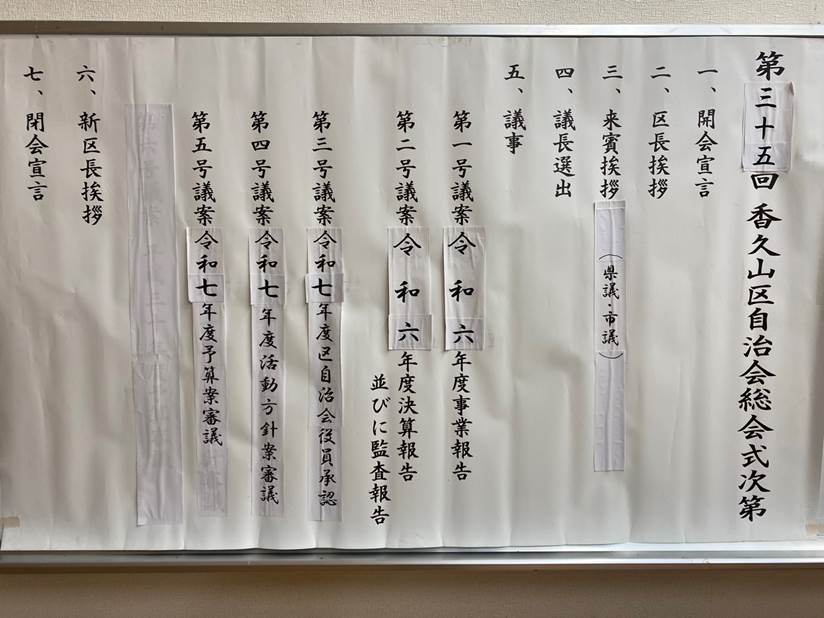 第三十五回 香久山区自治会総会式次第
一、開会宣言
二、区長挨拶
三、来賓挨拶（県議・市議）
四、議長選出
五、議事
第一号議案 令和六年度事業報告
第二号議案 令和六年度決算報告
並びに監査報告
第三号議案 令和七年度区自治会役員承認
第四号議案 令和七年度活動方針案審議
第五号議案 令和七年度予算案審議
六、新区長挨拶
七、閉会宣言